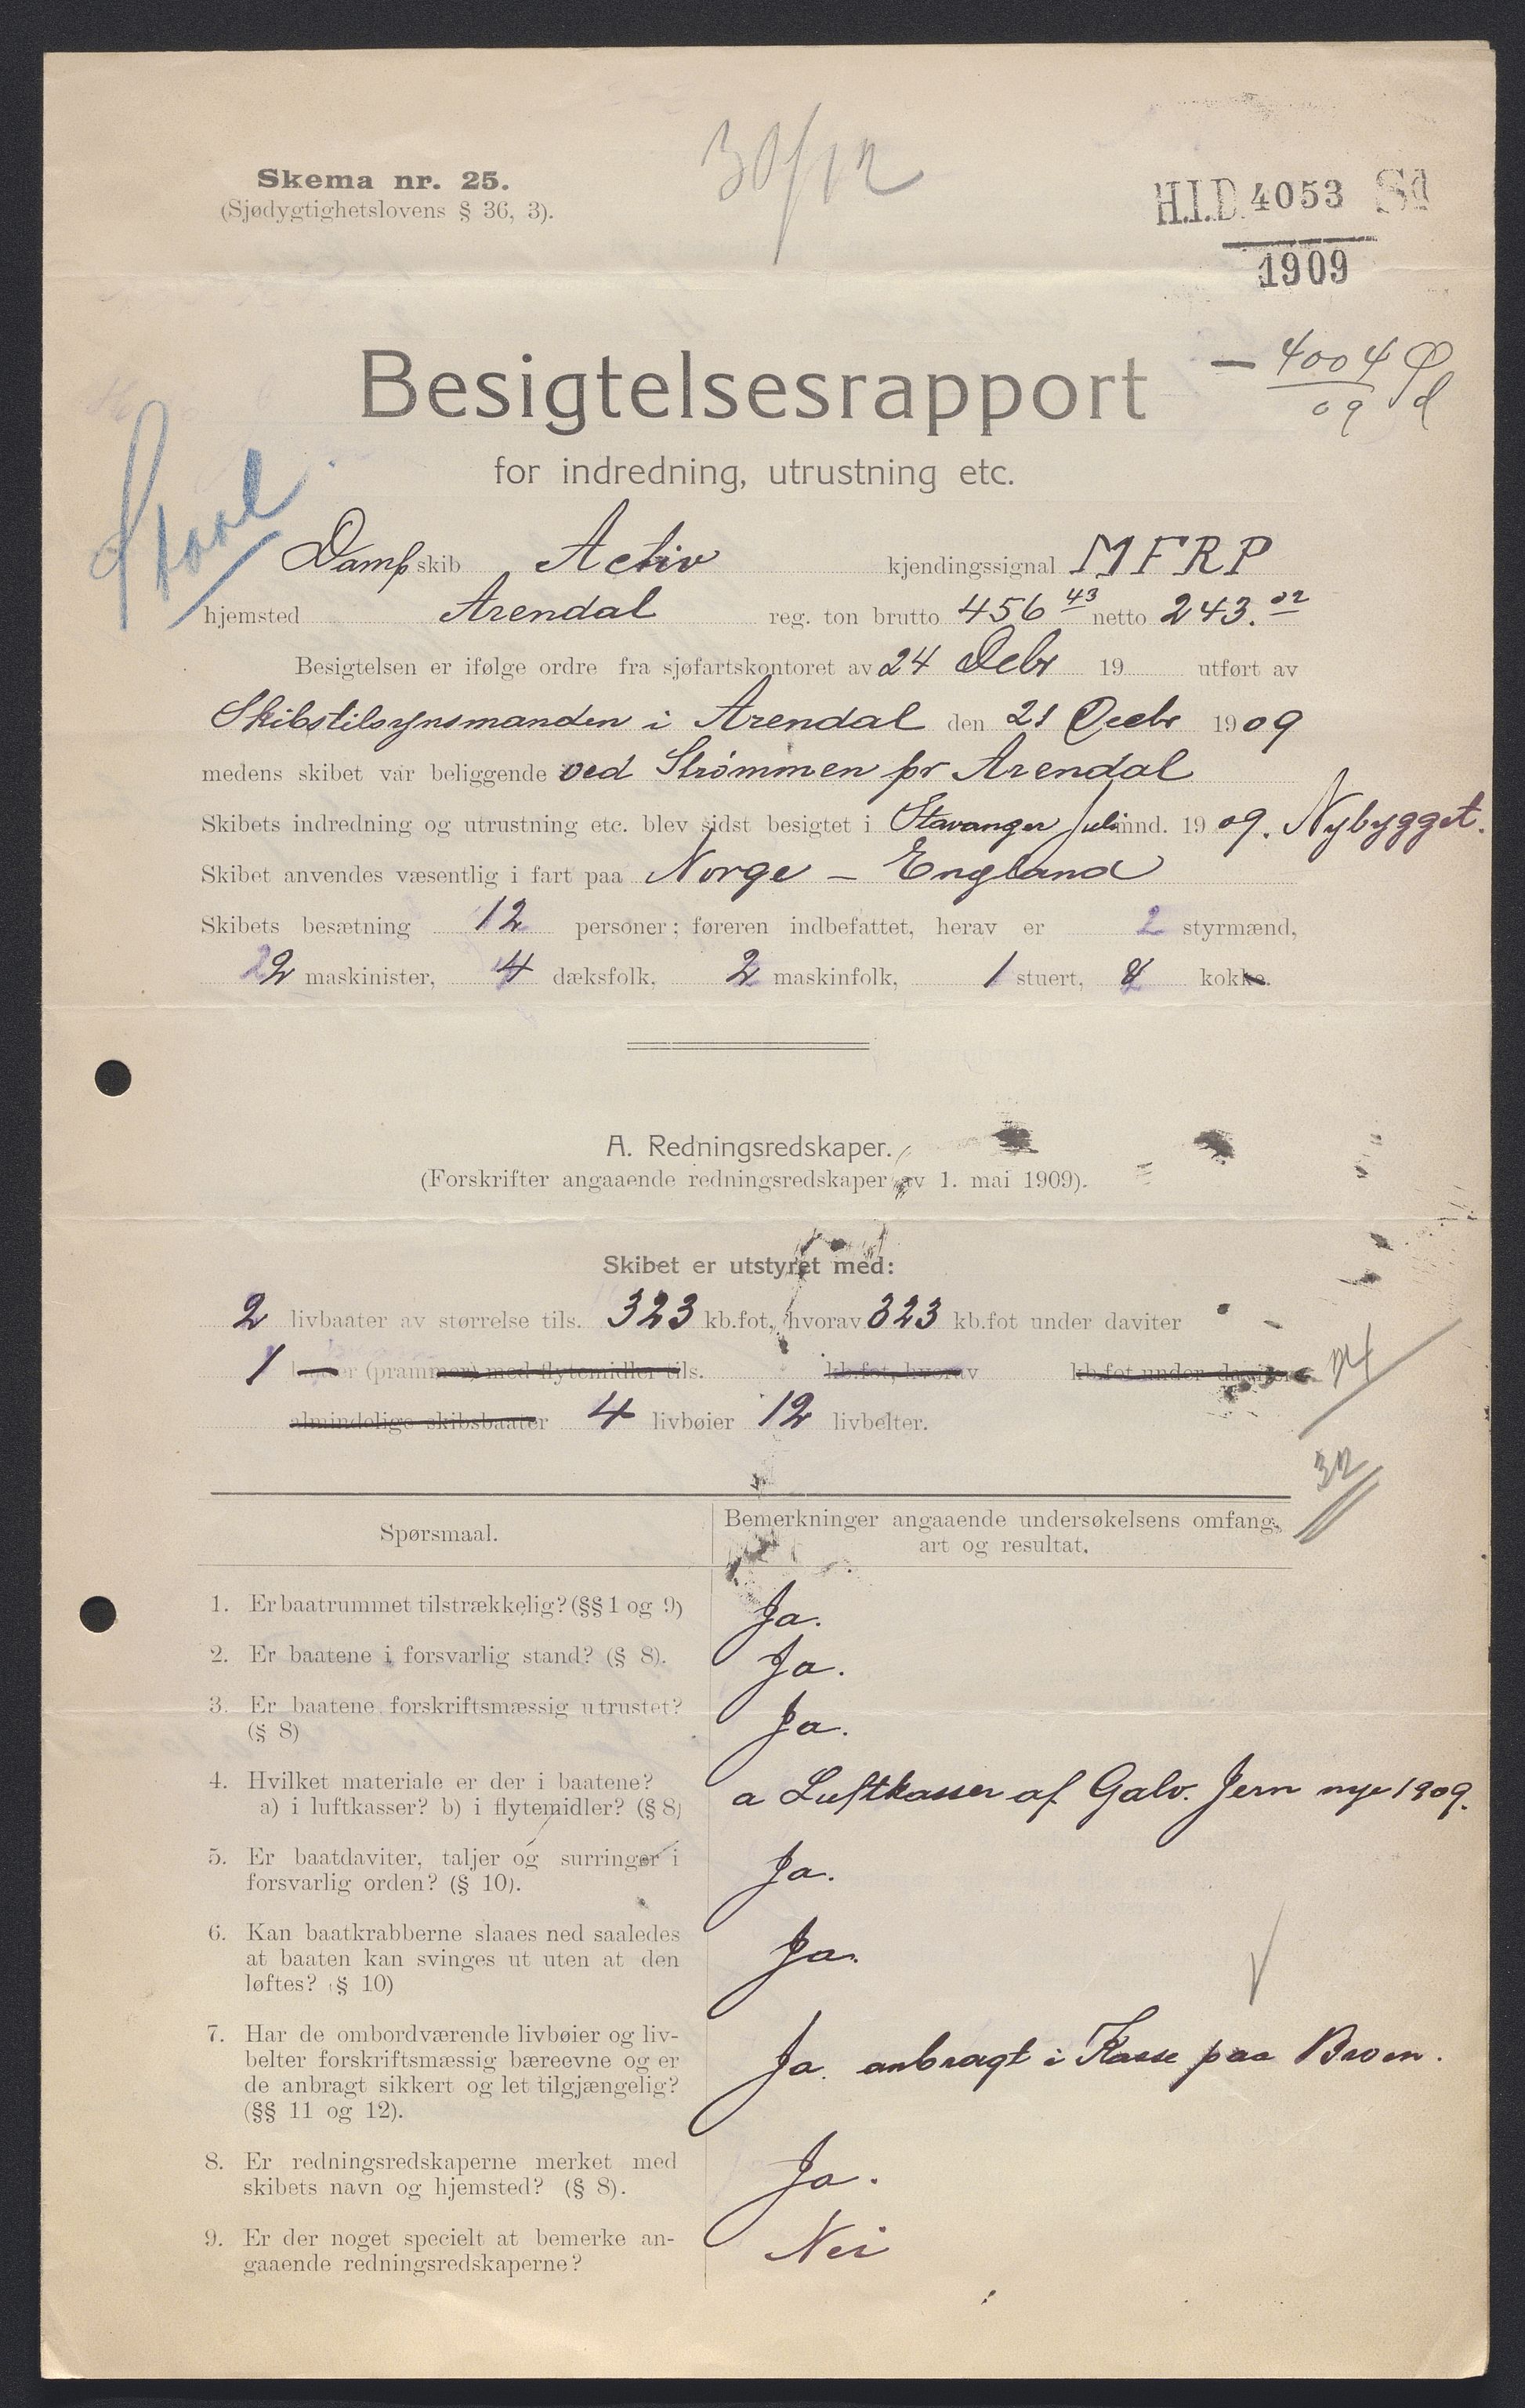 30/12
Skema nr. 25.
(Sjødygtighetslovens § 36, 3).
H.I.D. 4053 Sd
1909
Besigtelsesrapport
— 4004
09
for indredning, utrustning etc.
Staal
Dampskib Activ kjendingssignal MFRP
hjemsted Arendal reg. ton brutto 456 43 netto 243. 22
Besigtelsen er ifølge ordre fra sjøfartskontoret av 24 Debr 19 utført av
Skibstilsynsmanden i Arendal den 21 Decbr 1909
medens skibet var beliggende ved Strømmen pr Arendal
Skibets indredning og utrustning etc. blev sidst besigtet i Stavanger Juli mnd. 1909. Nybygget.
Skibet anvendes væsentlig i fart paa Norge – England
Skibets besætning 12 personer; føreren indbefattet, herav er 2 styrmænd,
2 maskinister, 4 dæksfolk, 2 maskinfolk, 1 stuert, kokke.
A. Redningsredskaper.
(Forskrifter angaaende redningsredskaper av 1. mai 1909).
Skibet er utstyret med:
2 livbaater av størrelse tils. 323 kb.fot, hvorav 323 kb.fot under daviter
1 baater (prammer) med flytemidler tils. kb.fot, hvorav kb.fot under daviter
almindelige skibsbaater 4 livbøier 12 livbelter.
32
Spørsmaal.
Bemerkninger angaaende undersøkelsens omfang,
art og resultat.
1. Er baatrummet tilstrækkelig? (§§ 1 og 9)
Ja.
2. Er baatene i forsvarlig stand? (§ 8).
Ja.
3. Er baatene forskriftsmæssig utrustet?
(§ 8)
Ja.
4. Hvilket materiale er der i baatene?
a) i luftkasser? b) i flytemidler? (§ 8)
a Luftkasser af Galv. Jern nye 1909.
5. Er baatdaviter, taljer og surringer i
forsvarlig orden? (§ 10).
Ja.
6. Kan baatkrabberne slaaes ned saaledes
at baaten kan svinges ut uten at den
løftes? (§ 10)
Ja.
7. Har de ombordværende livbøier og liv-
belter forskriftsmæssig bæreevne og er
de anbragt sikkert og let tilgjængelig?
(§§ 11 og 12).
Ja. anbragt i Kasse paa Broen.
8. Er redningsredskaperne merket med
skibets navn og hjemsted? (§ 8).
Ja.
9. Er der noget specielt at bemerke an-
gaaende redningsredskaperne?
Nei